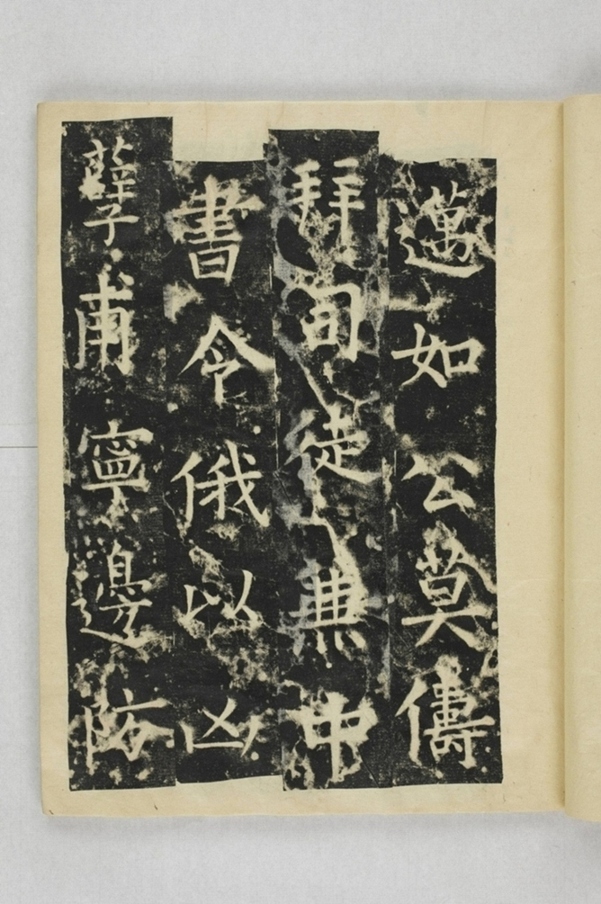 邁如公莫儔
拜司徒兼中
書令俄以凶
孽甫寧邊防